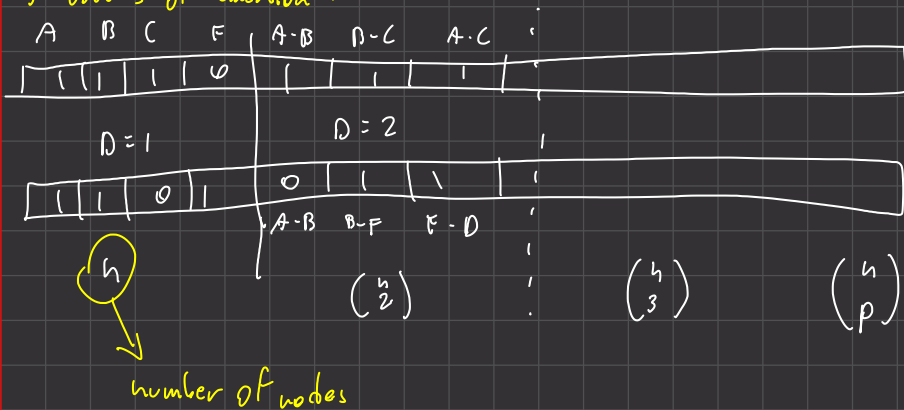 A B C F A-B B-C A-C
1 1 1 0 1 1 1
D=1 D=2
1 1 0 1 0 1 1
A-B B-F F-D
n (n 2) (n 3) (n p)
number of nodes